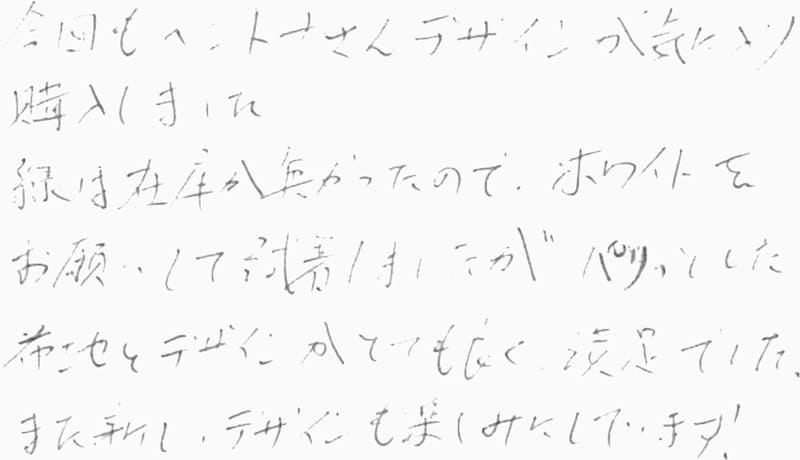 今回もヘントナさんデザインが気に入り
購入しました
緑は在庫が無かったので、ホワイトを
お願いして試着しましたが パリッとした
布地とデザインがとても良く 満足でした、
また新しいデザインも楽しみにしています!